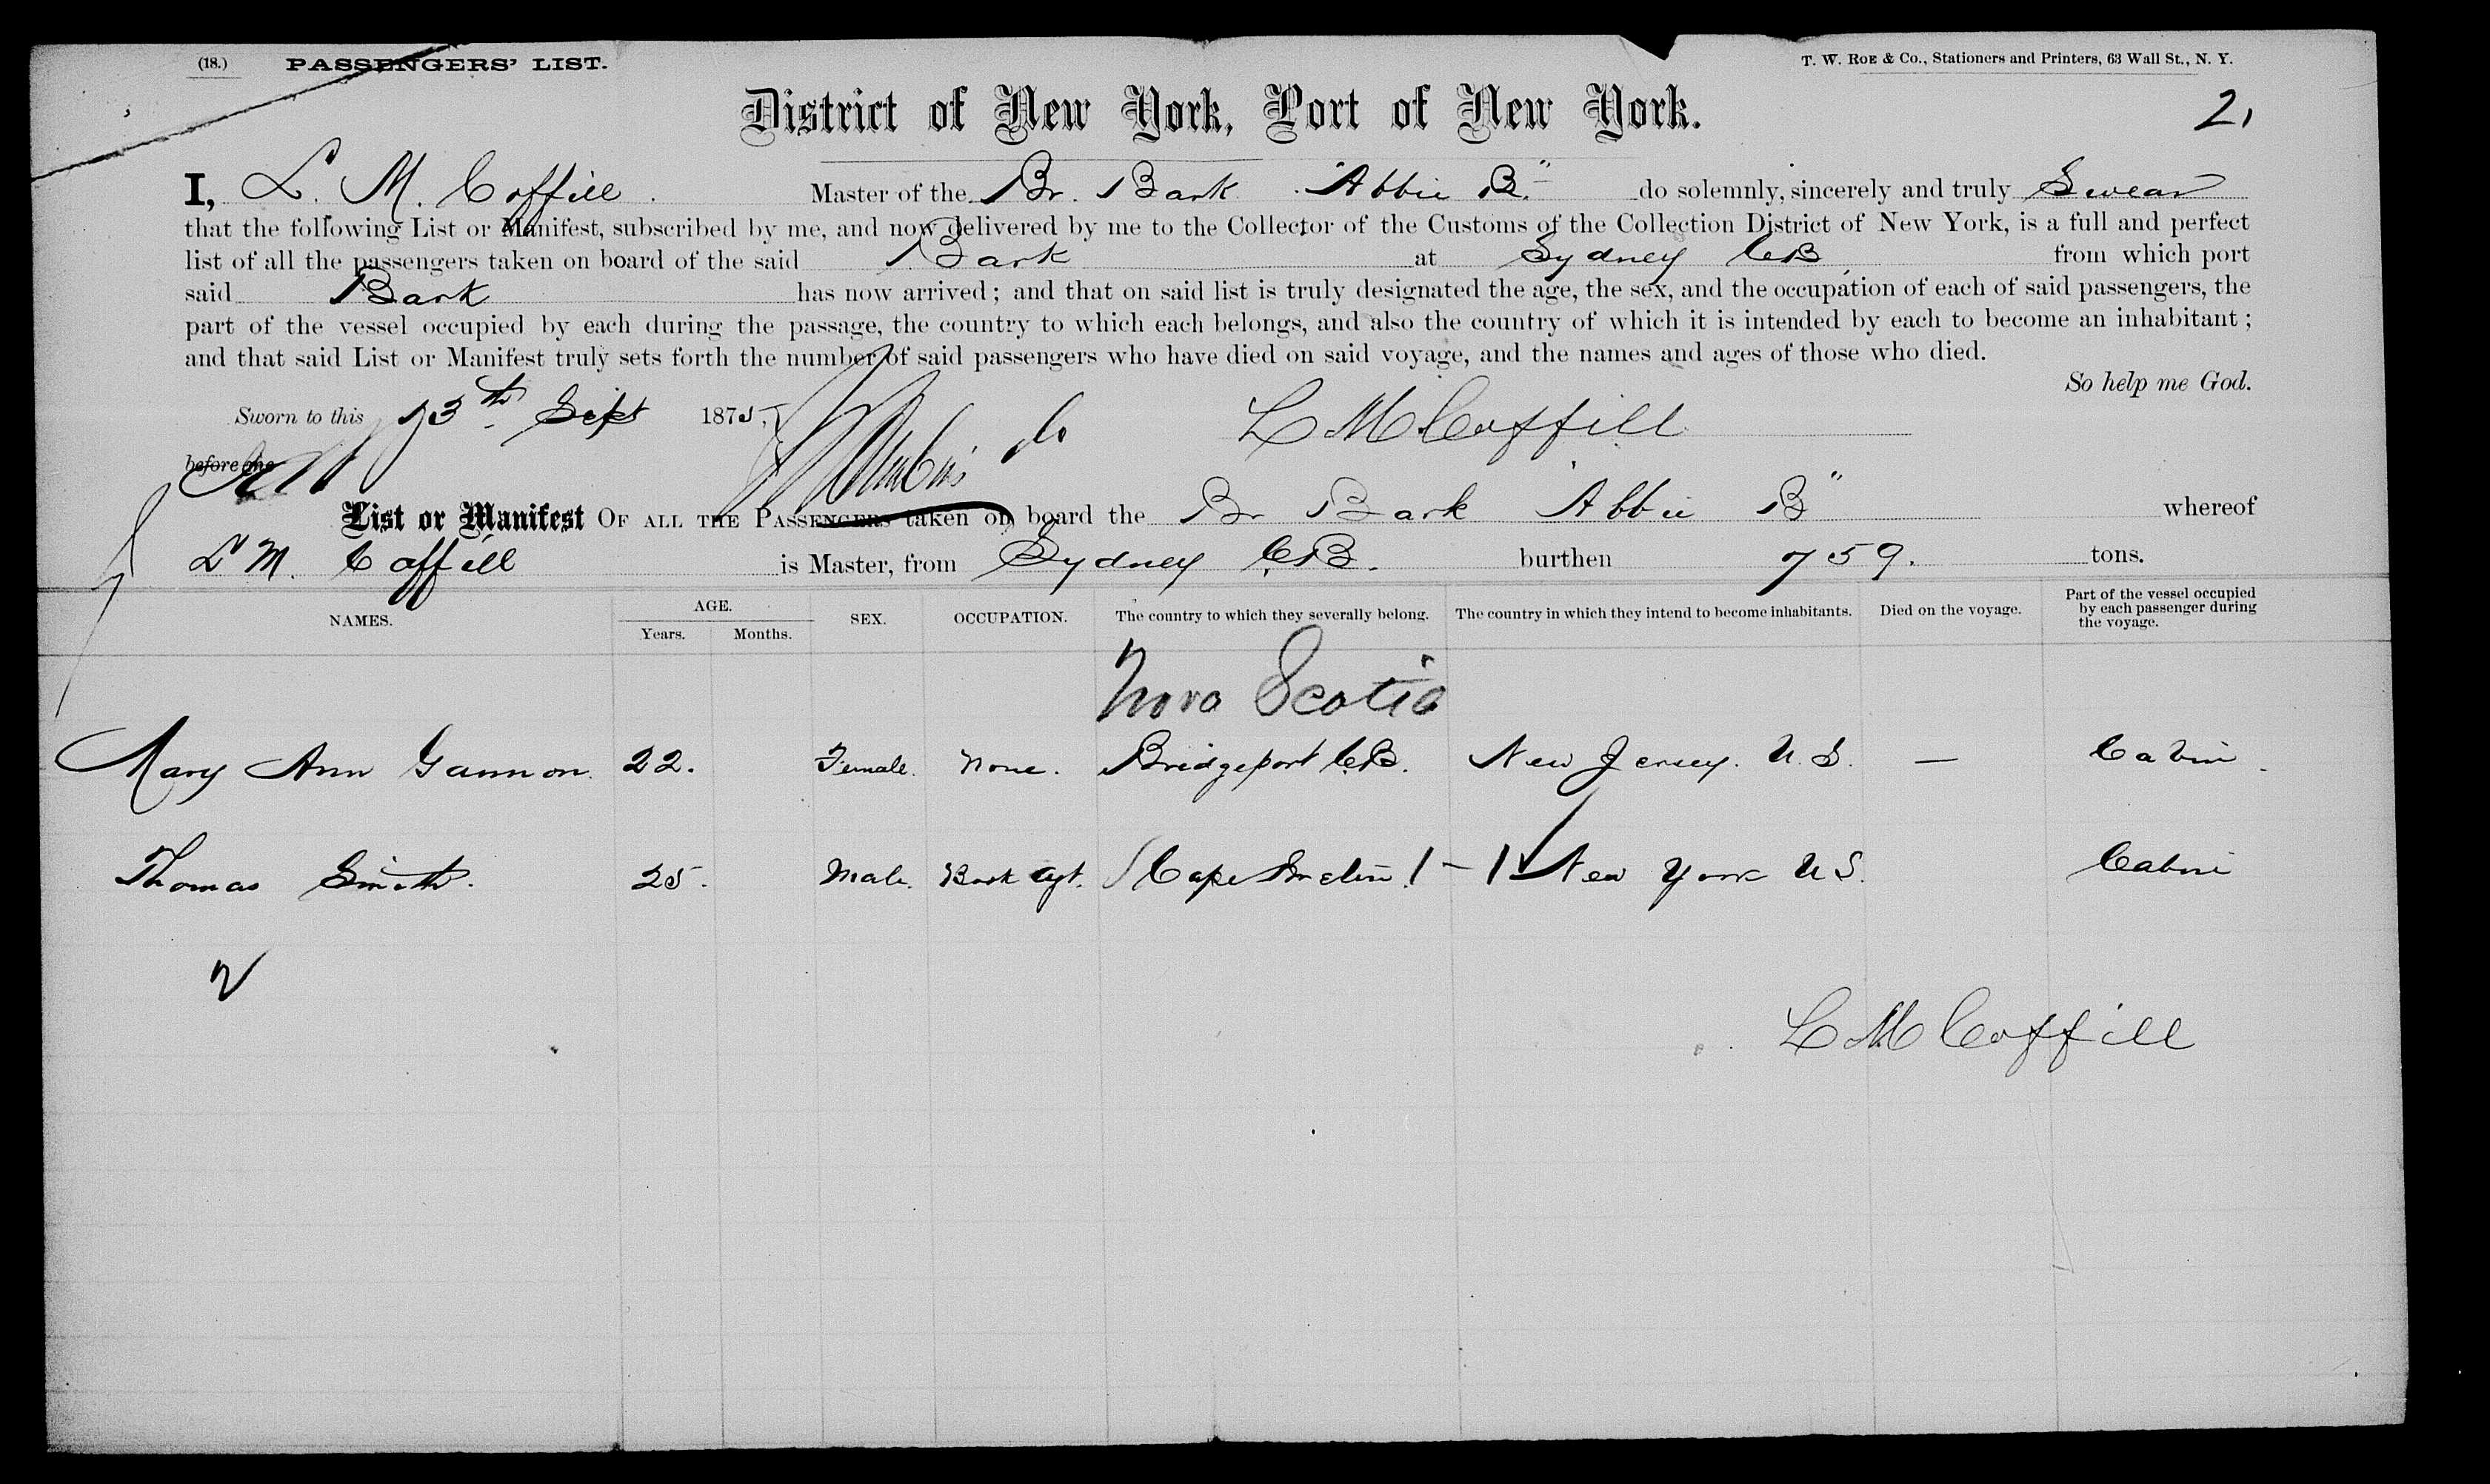 (18.) PASSENGERS' LIST. T. W. ROE & Co., Stationers and Printers, 63 Wall St., N. Y.
District of New York, Port of New York. 21
I, L. M. Coffill. Master of the Br. Bark "Abbie B." do solemnly, sincerely and truly Swear
that the following List or Manifest, subscribed by me, and now delivered by me to the Collector of the Customs of the Collection District of New York, is a full and perfect
list of all the passengers taken on board of the said Bark at Sydney CB, from which port
said Bark has now arrived; and that on said list is truly designated the age, the sex, and the occupation of each of said passengers, the
part of the vessel occupied by each during the passage, the country to which each belongs, and also the country of which it is intended by each to become an inhabitant;
and that said List or Manifest truly sets forth the number of said passengers who have died on said voyage, and the names and ages of those who died.
So help me God.
Sworn to this 13th Sept 1875, L M Coffill
before me
List or Manifest OF ALL THE PASSENGERS taken on board the Br Bark "Abbie B" whereof
L M. Coffill is Master, from Sydney C,B. burthen 759. tons.
NAMES. AGE. SEX. OCCUPATION. The country to which they severally belong. The country in which they intend to become inhabitants. Died on the voyage. Part of the vessel occupied by each passenger during the voyage.
Years. Months.
Nova Scotia
Mary Ann Gannon. 22. Female. None. Bridgeport C.B. New Jersey. U.S. — Cabin.
Thomas Smith. 25. Male. Book Agt. Cape Breton 1 - 1 New York U S. Cabin
L M Coffill